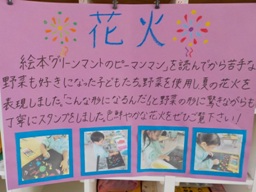 花火
絵本「グリーンマントのピーマンマン」を読んでから苦手な
野菜も好きになった子どもたち。野菜を使用し夏の花火を
表現しました。「こんな形になるんだ」と野菜の形に驚きながらも
丁寧にスタンプをしました。色鮮やかな花火をぜひご覧下さい!